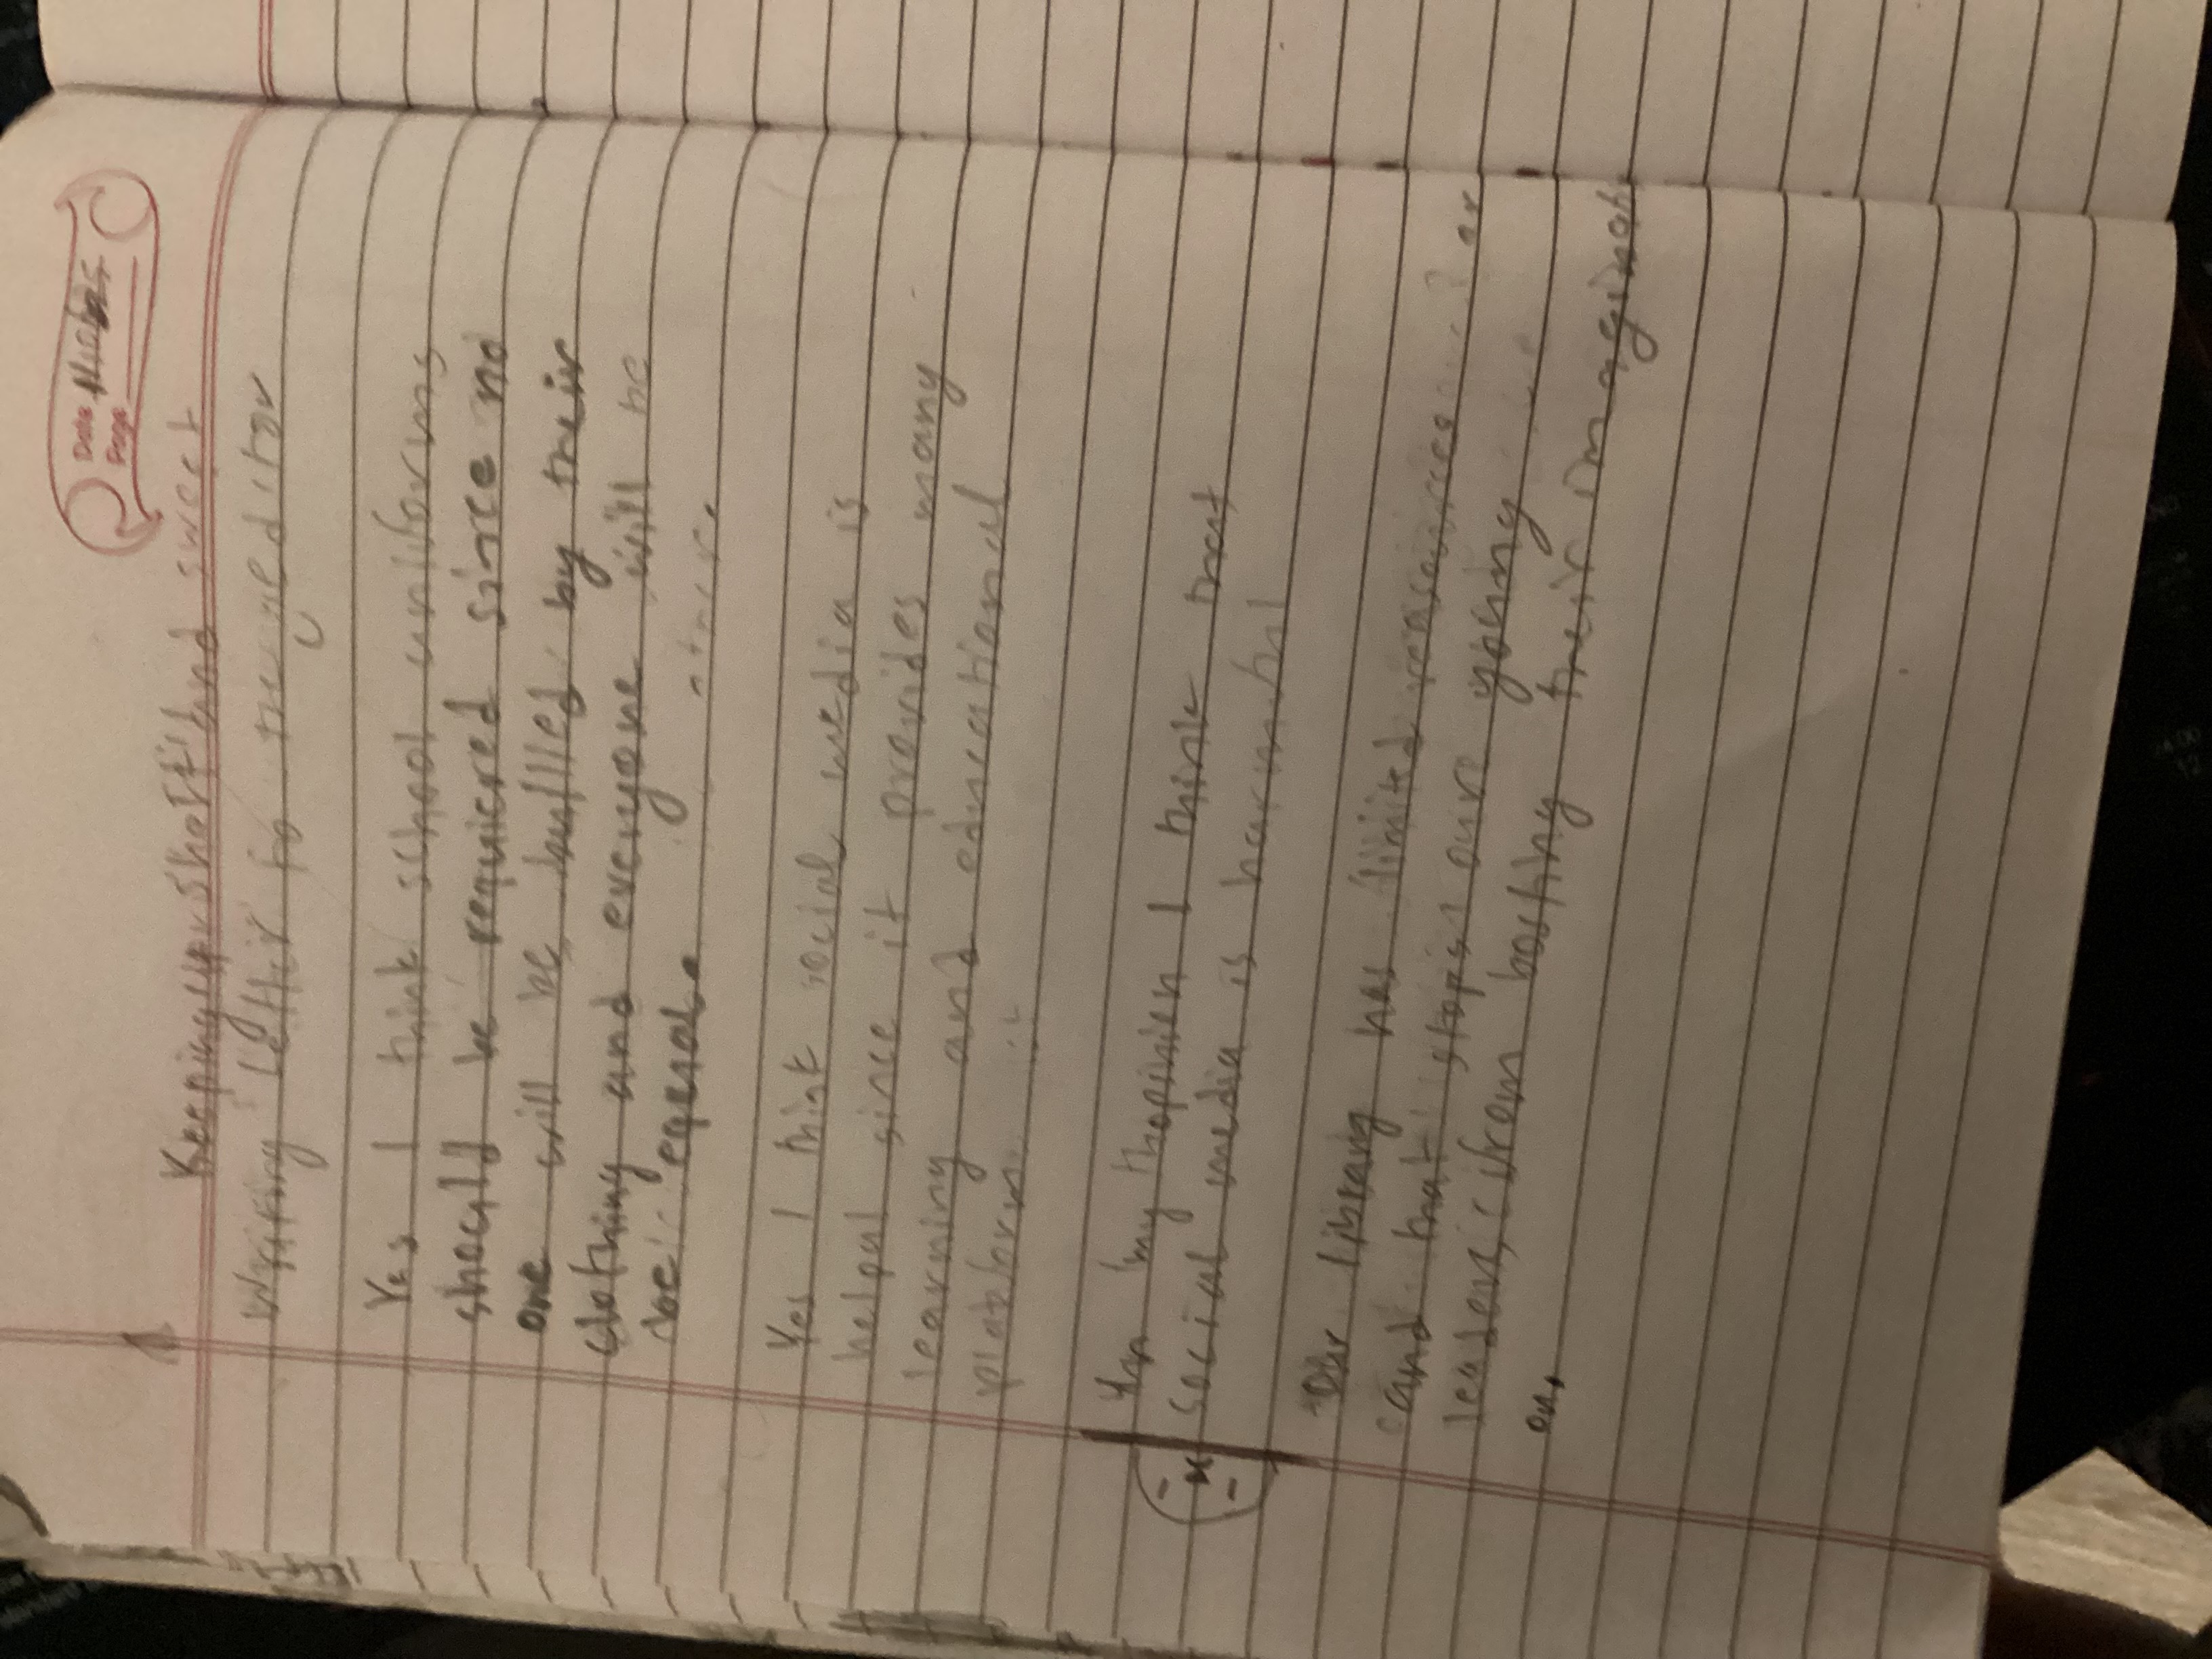 Date
Page
Keeping it short and sweet
Writing letter to the editor
Yes I think school uniforms
shocalld be requicred since no
one will be bulllled by their
clothing and everyone will be
equals.
Yes I think social media is
helpul since it provides many
learning and educational
platform
my thopinien I think that
social media is harmful
Our library has limited
and that stopis oure young
leaders from bosting their imaginati
on.